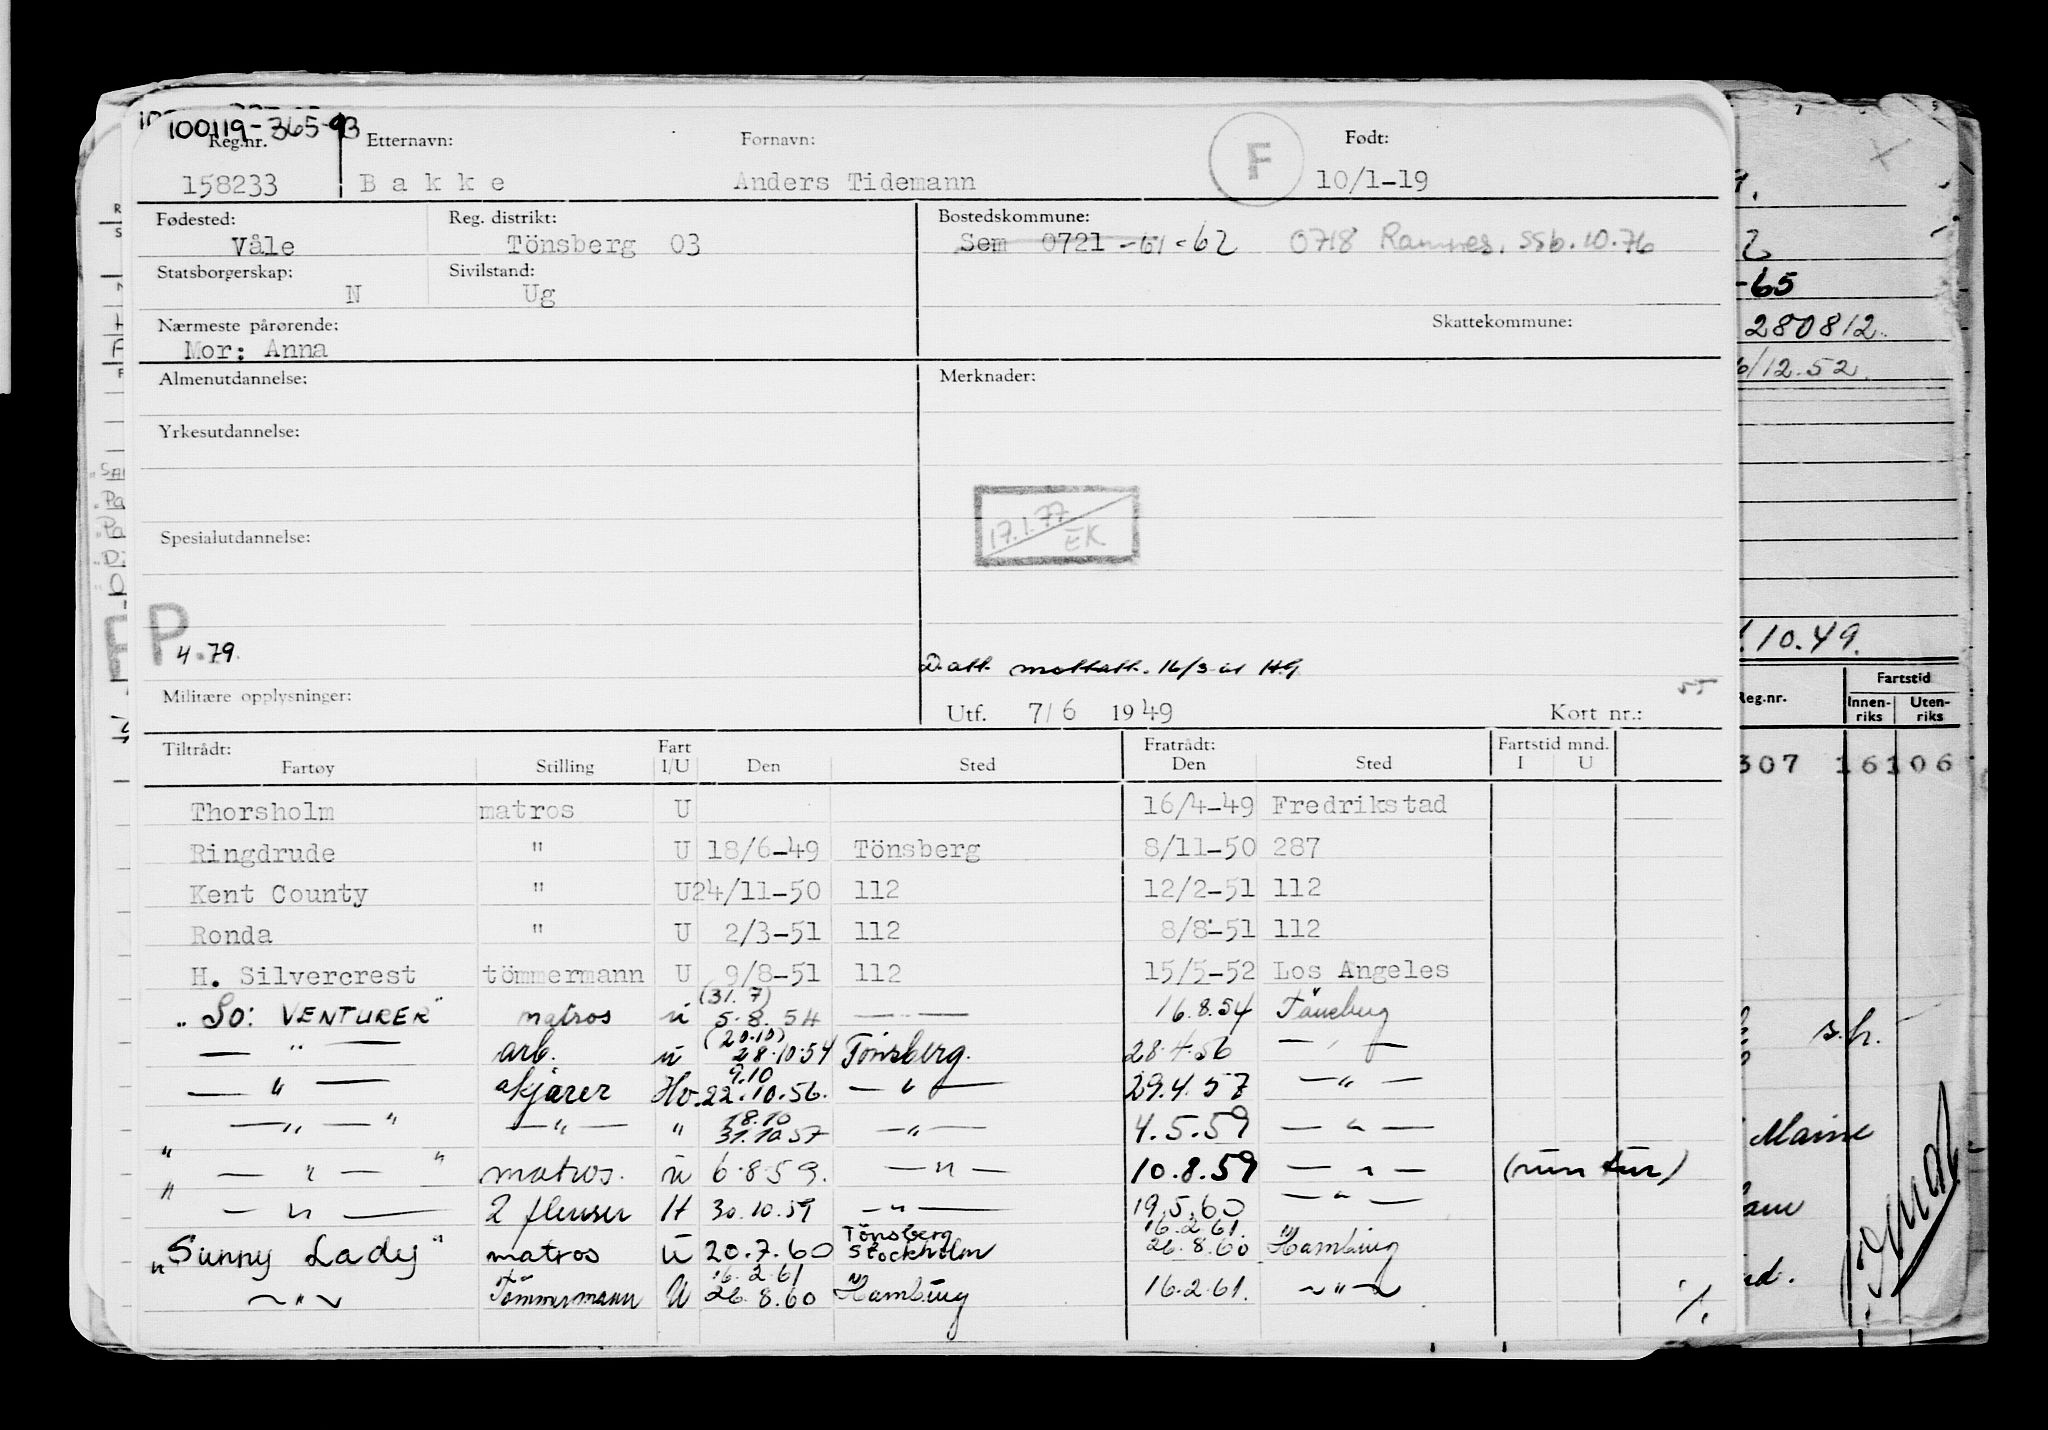 100119-365-93
Reg.nr. Etternavn: Fornavn: F Født:
158233 Bakke Anders Tidemann 10/1-19
Fødested: Reg. distrikt: Bostedskommune:
Våle Tönsberg 03 Sem 0721 -61-62 0718 Ramnes. SSb. 10.76
Statsborgerskap: Sivilstand:
N Ug
Nærmeste pårørende: Skattekommune:
Mor: Anna
Almenutdannelse: Merknader:
Yrkesutdannelse:
17.1.77 EK
Spesialutdannelse:
P
4.79.
D.att. mottatt. 16/3-61 Hg
Militære opplysninger: 55
Utf. 7/6 1949 Kort nr.:
Tiltrådt: Fart Fratrådt: Fartstid mnd.
Fartøy Stilling I/U Den Sted Den Sted I U
Thorsholm matros U 16/4-49 Fredrikstad
Ringdrude " U 18/6-49 Tönsberg 8/11-50 287
Kent County " U 24/11-50 112 12/2-51 112
Ronda " U 2/3-51 112 8/8-51 112
H. Silvercrest tömmermann U 9/8-51 112 15/5-52 Los Angeles
(31.7)
"So: VENTURER" matros u 5.8.54 — " — 16.8.54 Tönsberg
(20.10)
— " — arb. u 28.10.54 Tönsberg. 28.4.56 — " —
9.10
— " — skjærer Hv. 22.10.56. — " — 29.4.57 — " —
18.10
— " — " — " — " 31.10.57 — " — 4.5.59 — " —
" — " — " matros. u 6.8.59. — " — 10.8.59 — " — (run tur)
" — " — 2 flenser H 30.10.59 — " — 19.5.60 — " —
Tönsberg 16.2.61.
"Sunny Lady" matros u 20.7.60 Stockholm 26.8.60 Hamburg
16.2.61
— " — Tömmermann U 26.8.60 Hamburg 16.2.61. — " — ./.
-65
280812.
6/12.52.
10.49.
Reg.nr. Fartstid
Innen-riks Uten-riks
307 16106
s.h.
Maine